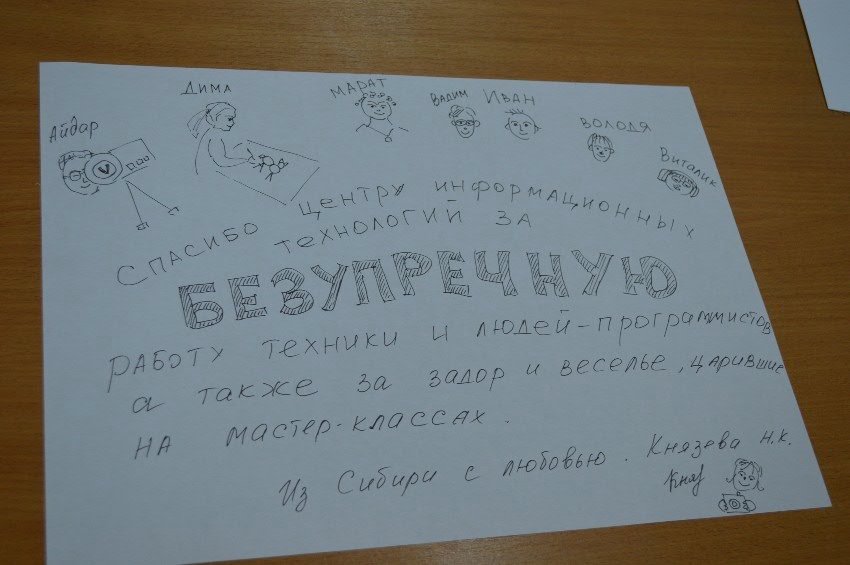 Айдар
Дима
Марат
Вадим
Иван
Володя
Виталик
Спасибо центру информационных
технологий за
БЕЗУПРЕЧНУЮ
работу техники и людей-программистов
а также за задор и веселье, царившие
на мастер-классах.
Из Сибири с любовью. Князева Н.К.
Княз